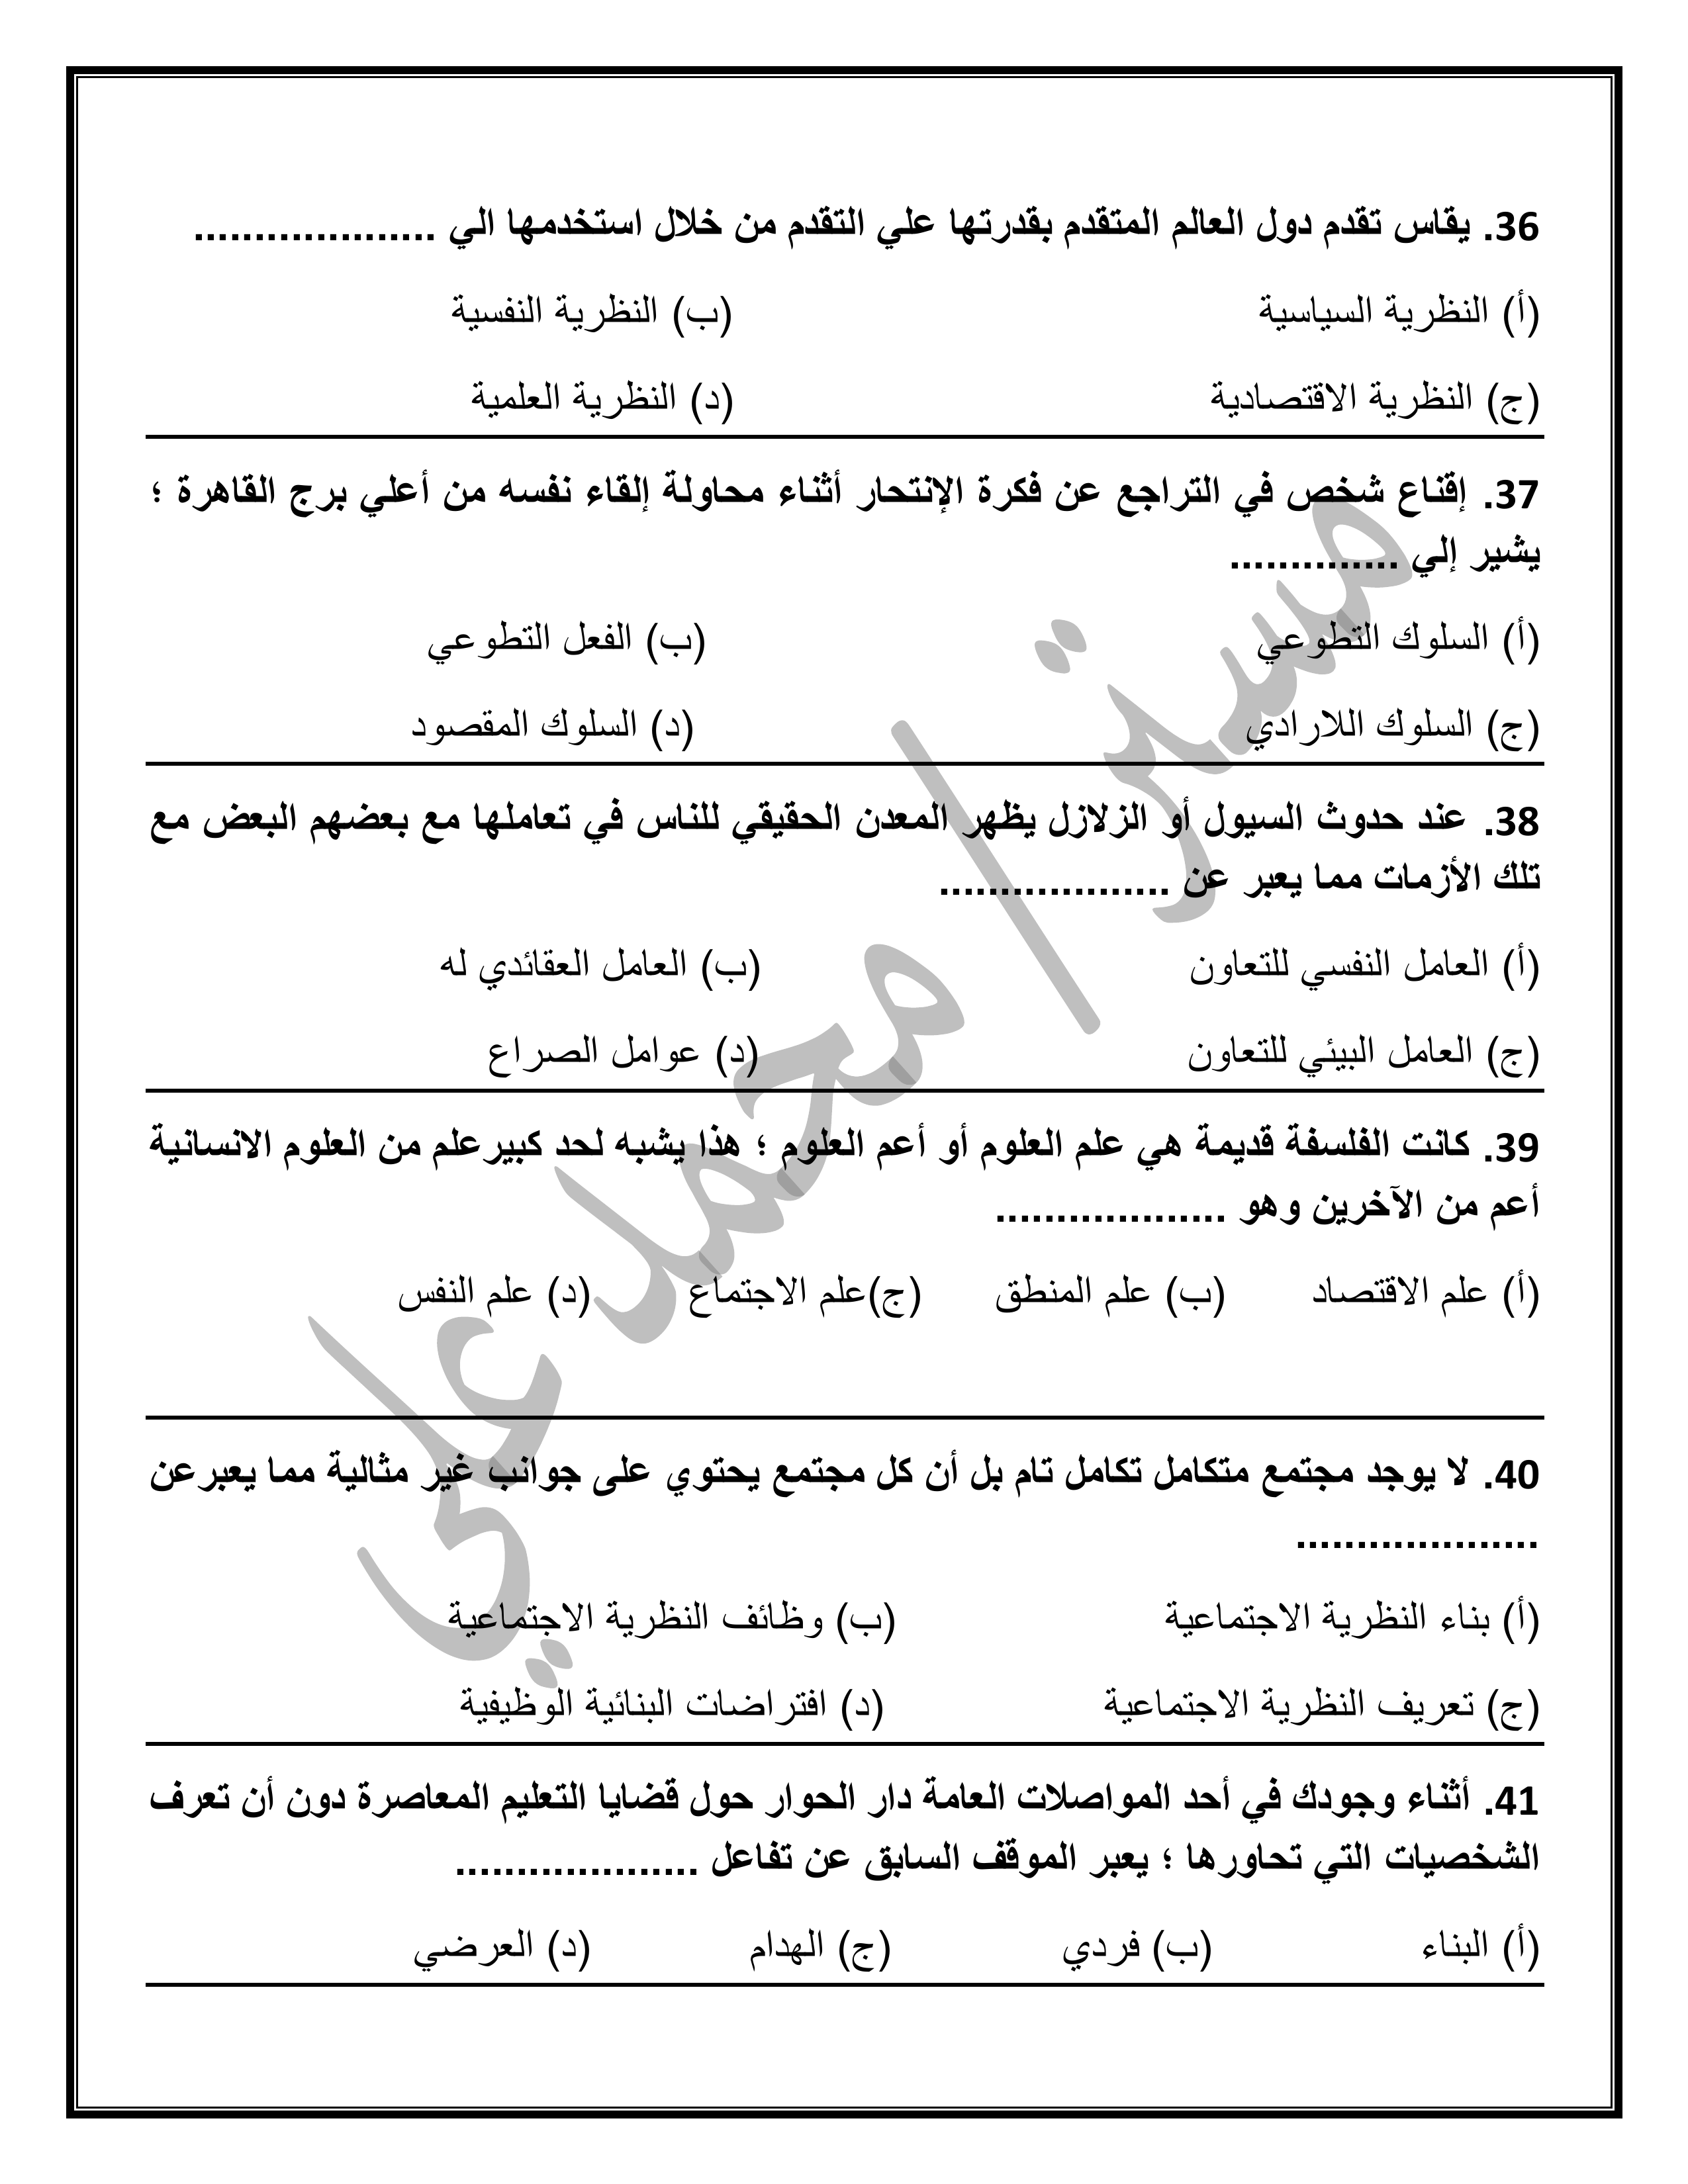 36. يقاس تقدم دول العالم المتقدم بقدرتها علي التقدم من خلال استخدمها الي ....................
(أ) النظرية السياسية (ب) النظرية النفسية
(ج) النظرية الاقتصادية (د) النظرية العلمية
37. إقناع شخص في التراجع عن فكرة الإنتحار أثناء محاولة إلقاء نفسه من أعلي برج القاهرة ؛
يشير إلي ..............
(أ) السلوك التطوعي (ب) الفعل التطوعي
(ج) السلوك اللارادي (د) السلوك المقصود
38. عند حدوث السيول أو الزلازل يظهر المعدن الحقيقي للناس في تعاملها مع بعضهم البعض مع
تلك الأزمات مما يعبر عن ...................
(أ) العامل النفسي للتعاون (ب) العامل العقائدي له
(ج) العامل البيئي للتعاون (د) عوامل الصراع
39. كانت الفلسفة قديمة هي علم العلوم أو أعم العلوم ؛ هذا يشبه لحد كبيرعلم من العلوم الانسانية
أعم من الآخرين وهو ...................
(أ) علم الاقتصاد (ب) علم المنطق (ج)علم الاجتماع (د) علم النفس
40. لا يوجد مجتمع متكامل تكامل تام بل أن كل مجتمع يحتوي على جوانب غير مثالية مما يعبرعن
....................
(أ) بناء النظرية الاجتماعية (ب) وظائف النظرية الاجتماعية
(ج) تعريف النظرية الاجتماعية (د) افتراضات البنائية الوظيفية
41. أثناء وجودك في أحد المواصلات العامة دار الحوار حول قضايا التعليم المعاصرة دون أن تعرف
الشخصيات التي تحاورها ؛ يعبر الموقف السابق عن تفاعل ....................
(أ) البناء (ب) فردي (ج) الهدام (د) العرضي
مستر/محمد علي